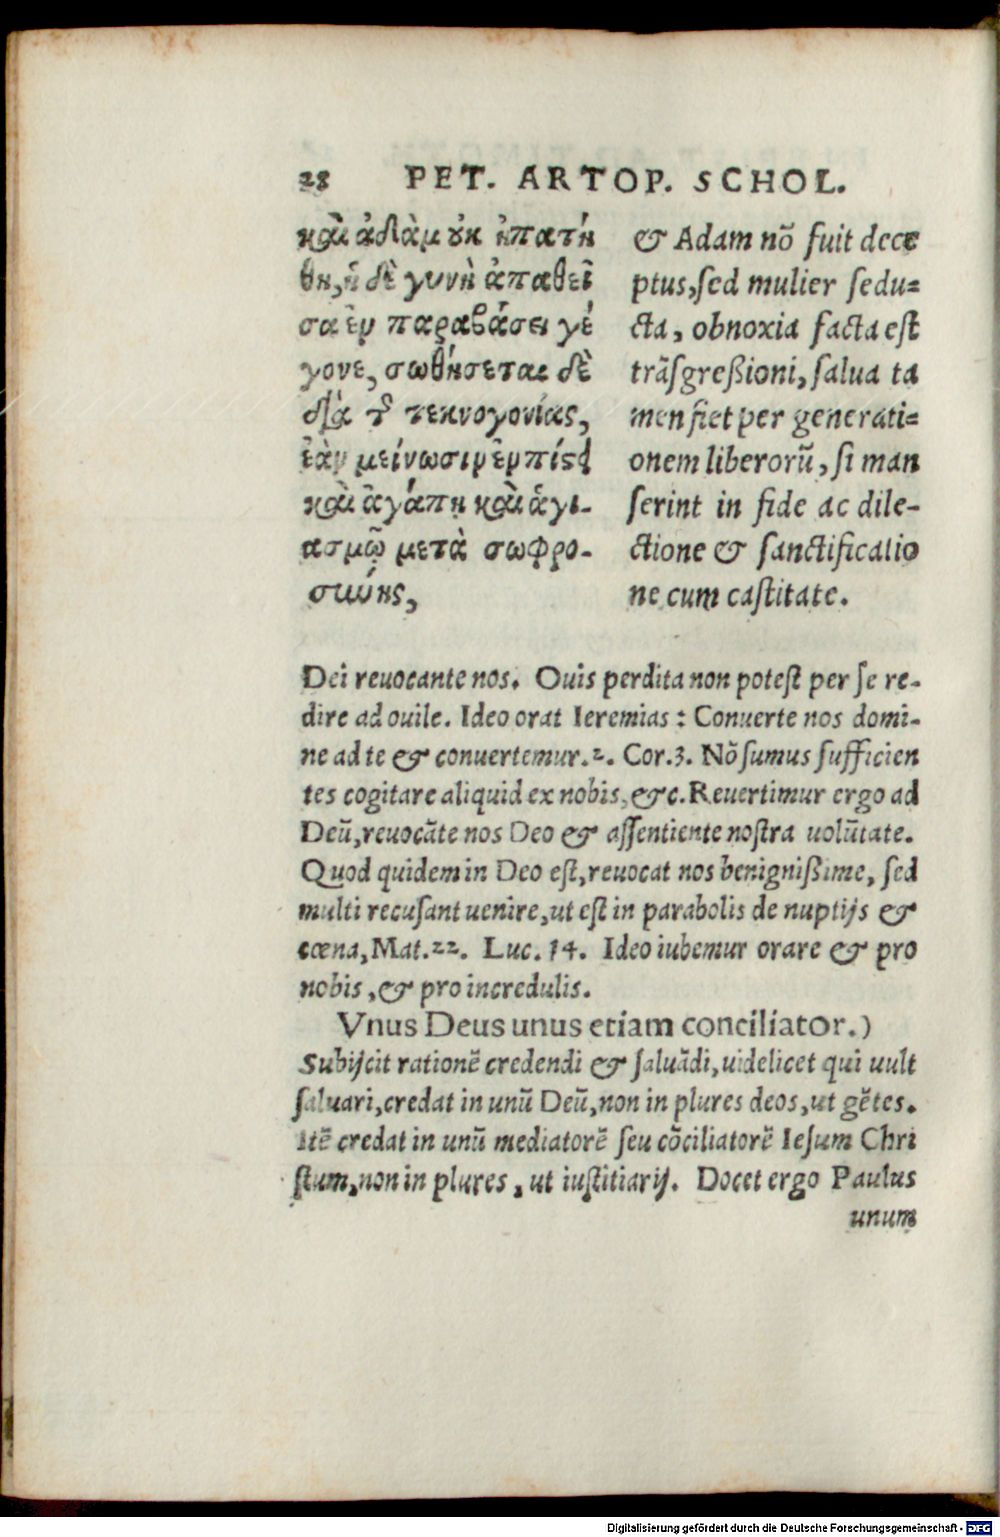 28 PET. ARTOP. SCHOL.
καὶ ἀδὰμ ȣκ ἠπατή
θη, ἡ δὲ γυνὴ ἀπαθεῖ
σα ἐν παραβάσει γέ
γονε, σωθήσεται δὲ
διὰ τ͂ τεκνογονίας,
ἐὰν μείνωσιν ἐν πίςἠ
καὶ ἀγάπῃ καὶ ἁγι-
ασμῷ μετὰ σωφρο-
σύνης,
& Adam nō fuit dece
ptus, sed mulier sedu=
cta, obnoxia facta est
trāsgreßioni, salua ta
men fiet per generati=
onem liberorū, si man
serint in fide ac dile-
ctione & sanctificatio
ne cum castitate.
Dei reuocante nos. Ouis perdita non potest per se re-
dire ad ouile. Ideo orat Ieremias : Conuerte nos domi-
ne ad te & conuertemur. 2. Cor. 3. Nō sumus sufficien
tes cogitare aliquid ex nobis, &c. Reuertimur ergo ad
Deū, reuocāte nos Deo & assentiente nostra uolūtate.
Quod quidem in Deo est, reuocat nos benignißime, sed
multi recusant uenire, ut est in parabolis de nuptijs &
cœna, Mat. 22. Luc. 14. Ideo iubemur orare & pro
nobis, & pro incredulis.
Vnus Deus unus etiam conciliator.)
Subijcit rationē credendi & saluādi, uidelicet qui uult
saluari, credat in unū Deū, non in plures deos, ut gētes.
Itē credat in unū mediatorē seu cōciliatorē Iesum Chri
stum, non in plures, ut iustitiarij. Docet ergo Paulus
unum
Digitalisierung gefördert durch die Deutsche Forschungsgemeinschaft - DFG